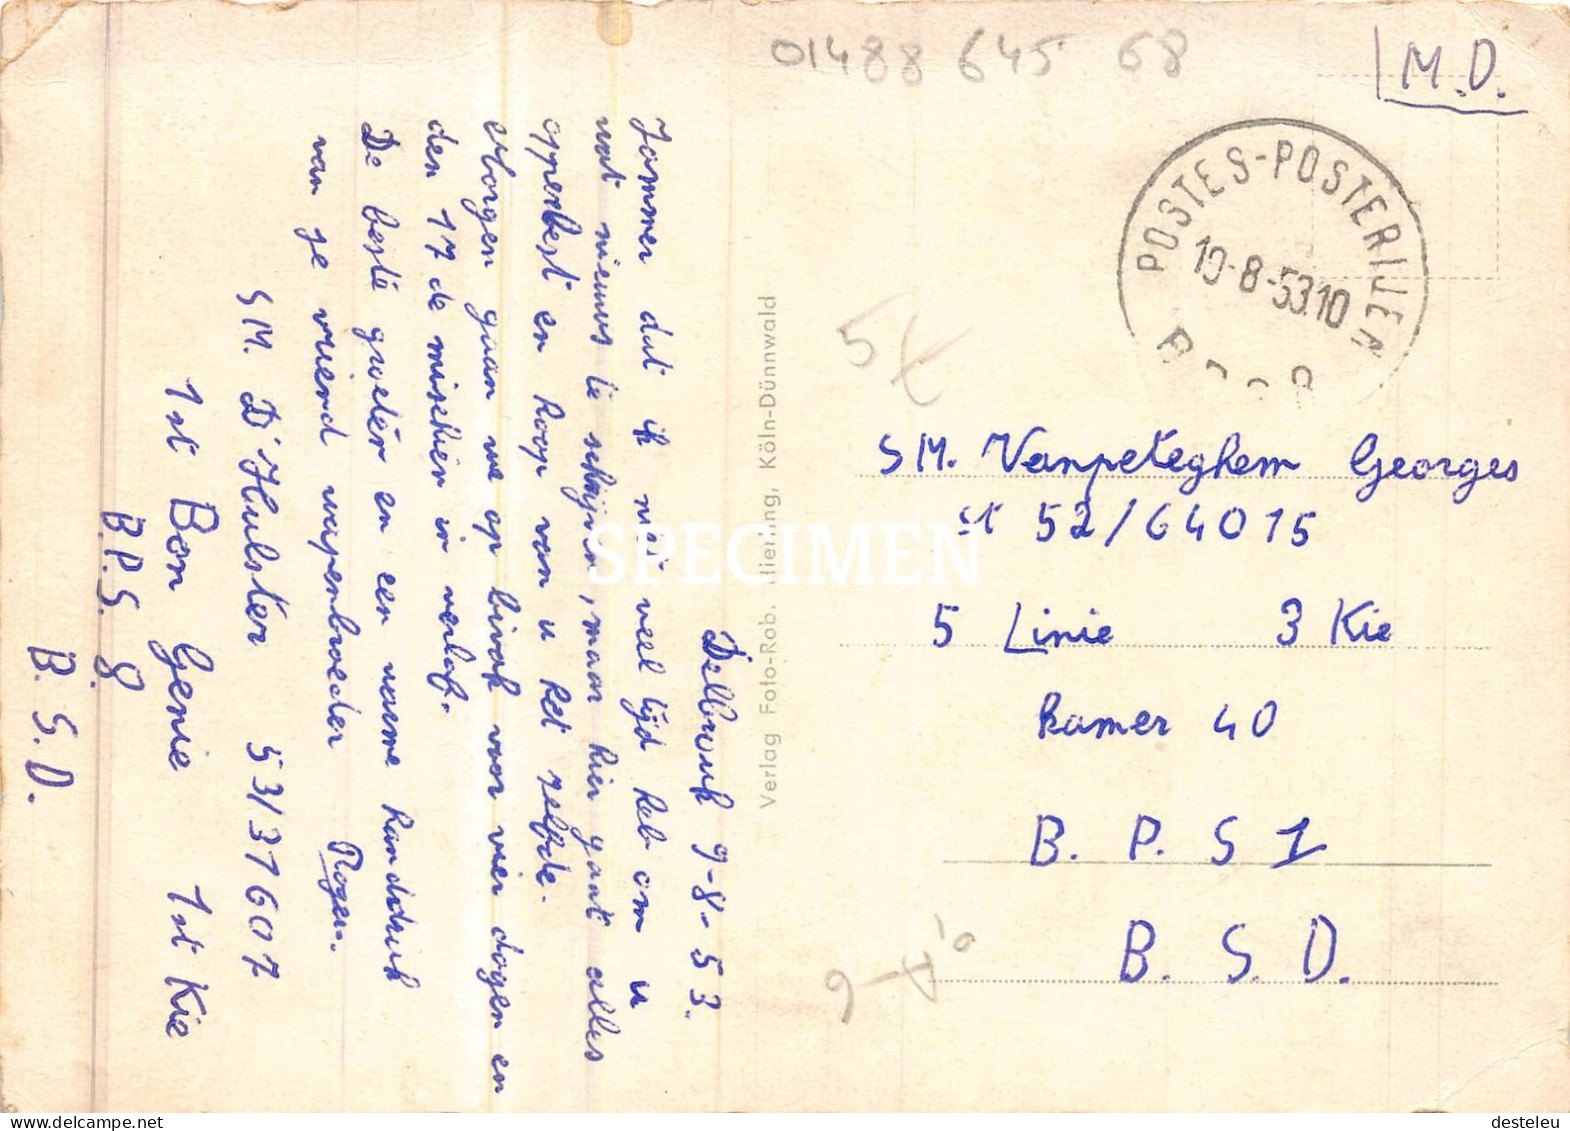 01488 645 68
M.D.
POSTES-POSTERIJEN
10-8-53.10
5
SM. Vanpeteghem Georges
st 52/64015
5 Linie 3 Kie
Kamer 40
B. P. S 1
B. S. D.
Verlag Foto-Rob. Köln-Dünnwald
SPECIMEN
Dellbruck 9-8-53.
Jammer dat ik niet veel tijd heb om u
wat nieuws te schrijven, maar hier gaat alles
opperbest en hoop van u het zelfde.
Morgen gaan we op bivak voor vier dagen en
den 17 de misschien in verlof.
De beste groeten en een warme handdruk
van je vriend wapenbroeder Roger.
SM. D'Hulster 53/37607
1st Bon Genie 1st Kie
B.P.S. 8.
B. S. D.
© desteleu
www.desteleu.be